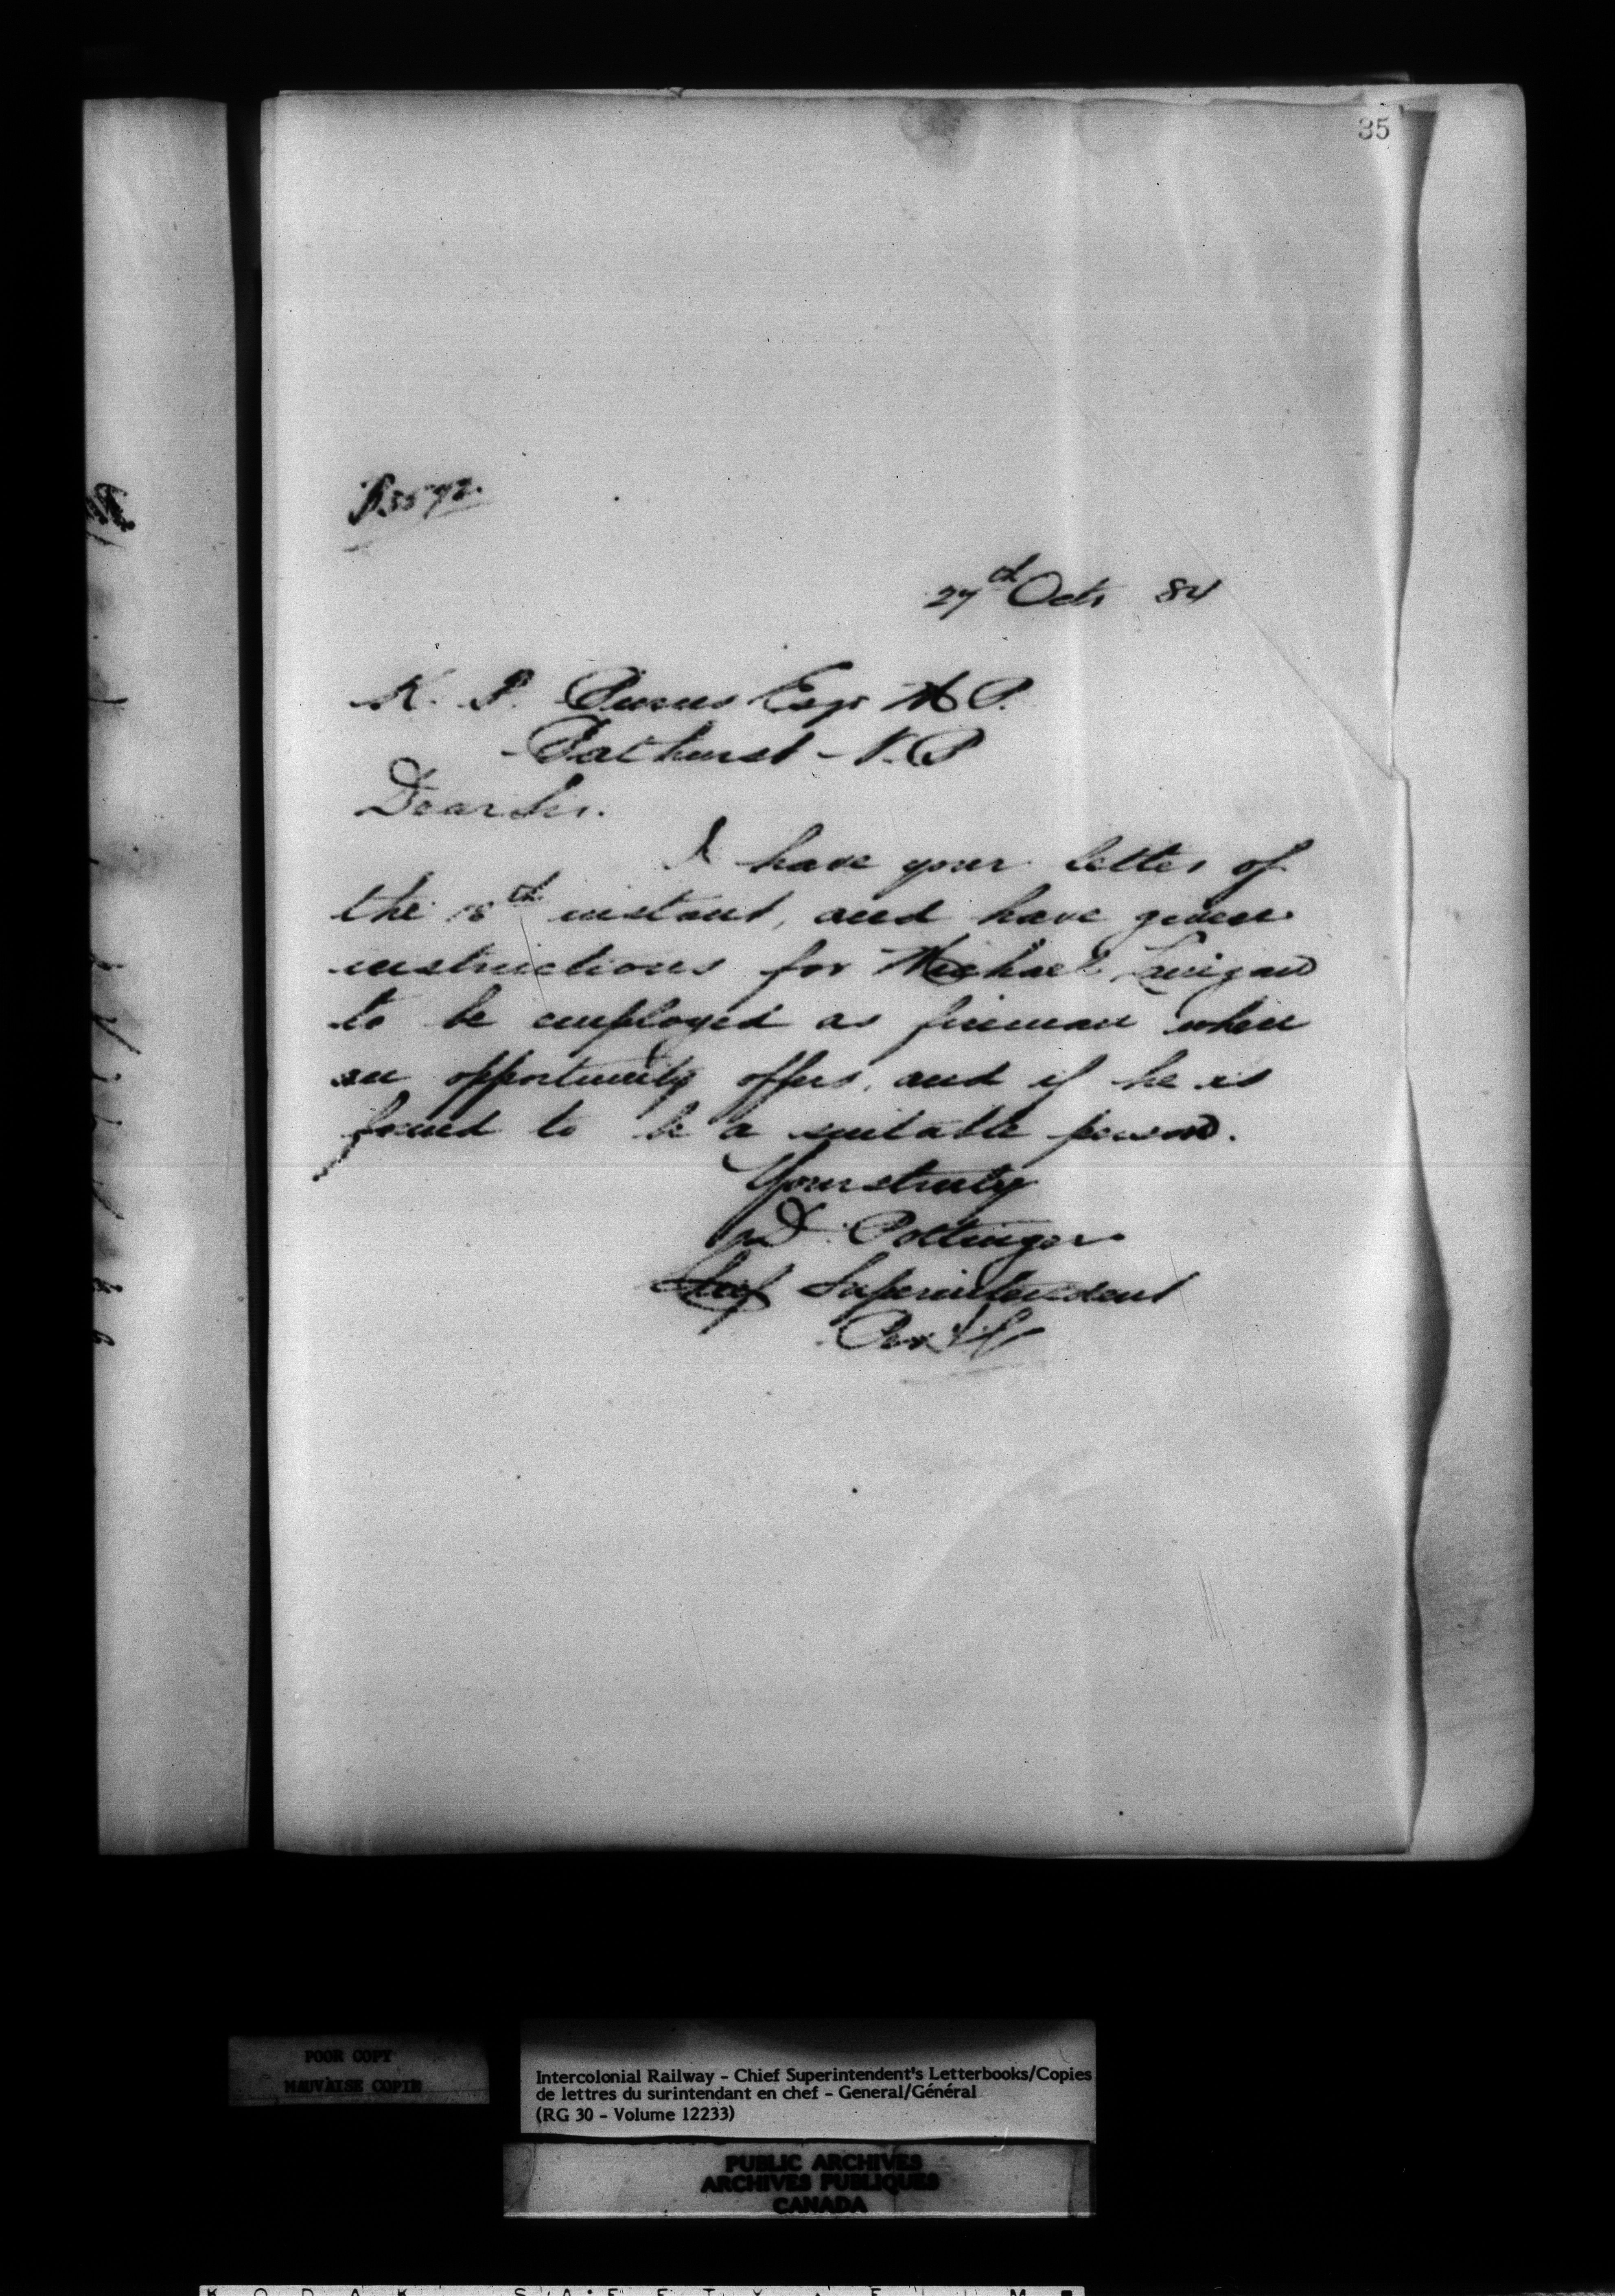 35
27th Octr 84
K. F. Burns Esqr M P.
Bathurst - N.B
Dear Sir.
I have your letter of
the 18th instant, and have given
instructions for Michael Lanigan
to be employed as fireman when
an opportunity offers, and if he is
found to be a suitable person.
Yours truly
D. Pottinger
Chief Superintendent
POOR COPY
MAUVAISE COPIE
Intercolonial Railway - Chief Superintendent's Letterbooks/Copies
de lettres du surintendant en chef - General/Général
(RG 30 - Volume 12233)
PUBLIC ARCHIVES
ARCHIVES PUBLIQUES
CANADA
KODAK SAFETY FILM